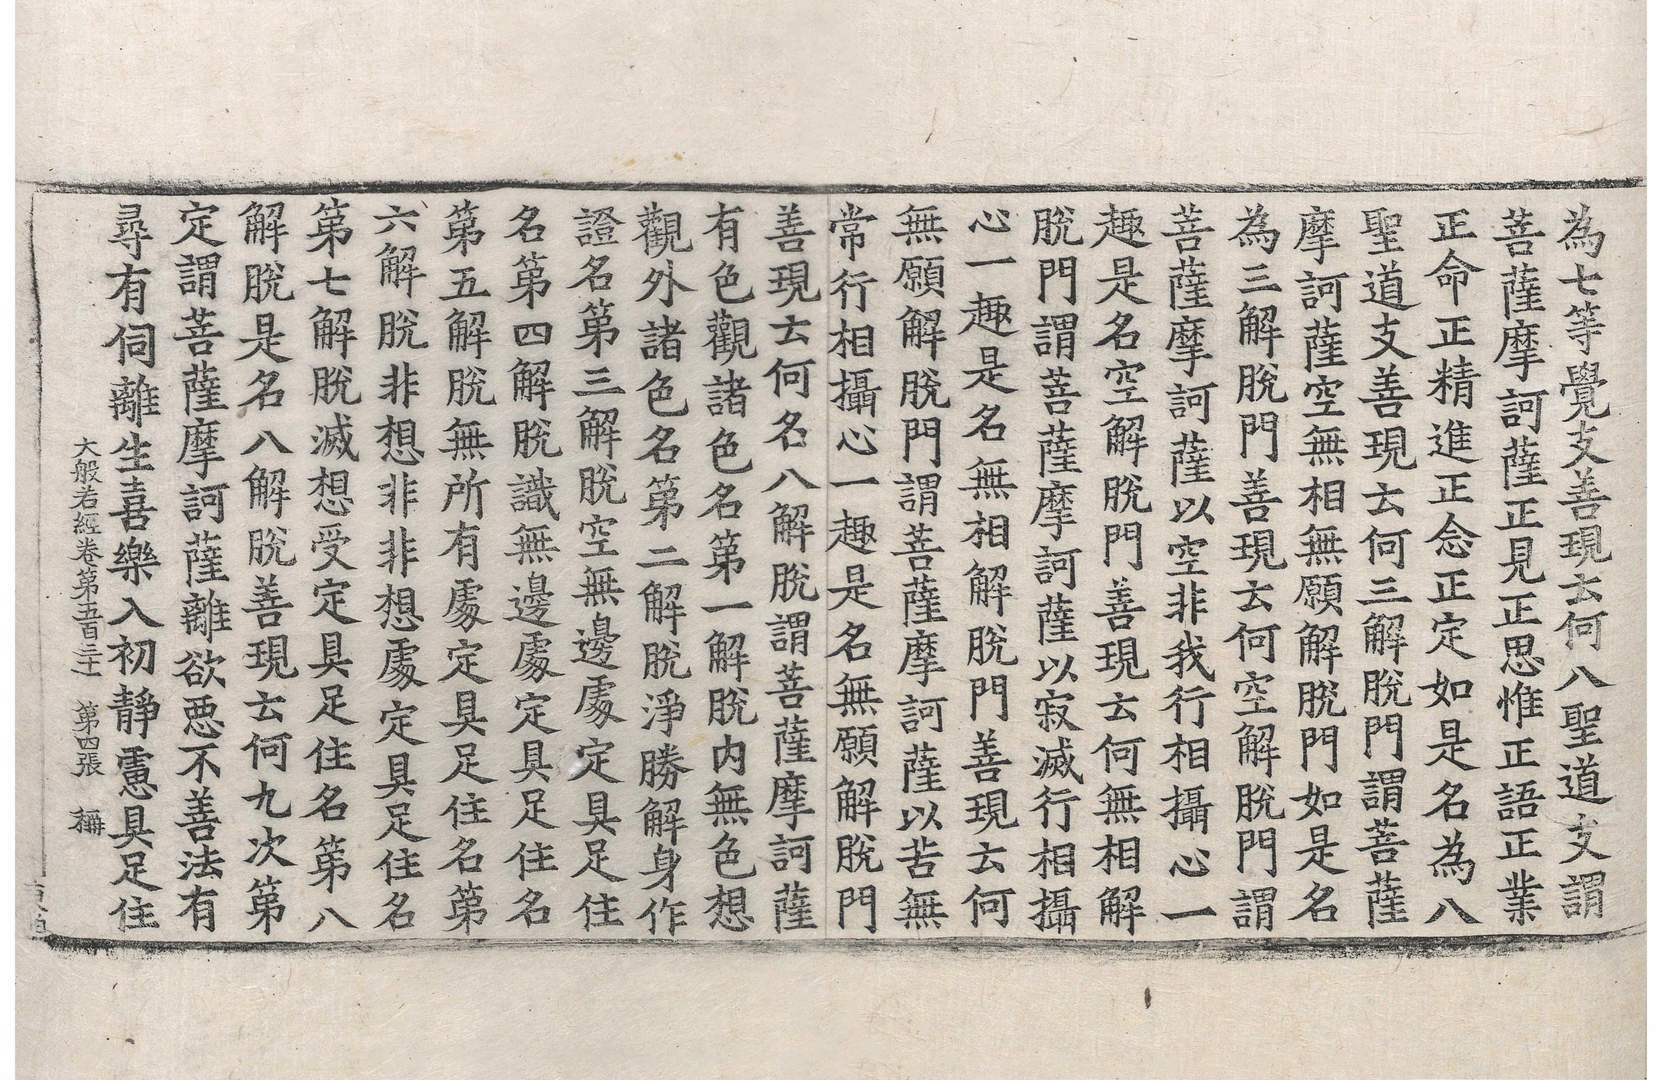 為七等覺支善現云何八聖道支謂
菩薩摩訶薩正見正思惟正語正業
正命正精進正念正定如是名為八
聖道支善現云何三解脫門謂菩薩
摩訶薩空無相無願解脫門如是名
為三解脫門善現云何空解脫門謂
菩薩摩訶薩以空非我行相攝心一
趣是名空解脫門善現云何無相解
脫門謂菩薩摩訶薩以寂滅行相攝
心一趣是名無相解脫門善現云何
無願解脫門謂菩薩摩訶薩以苦無
常行相攝心一趣是名無願解脫門
善現云何名八解脫謂菩薩摩訶薩
有色觀諸色名第一解脫内無色想
觀外諸色名第二解脫淨勝解身作
證名第三解脫空無邊處定具足住
名第四解脫識無邊處定具足住名
第五解脫無所有處定具足住名第
六解脫非想非非想處定具足住名
第七解脫滅想受定具足住名第八
解脫是名八解脫善現云何九次第
定謂菩薩摩訶薩離欲惡不善法有
尋有伺離生喜樂入初靜慮具足住
大般若經卷第五百三十一 第四張 稱